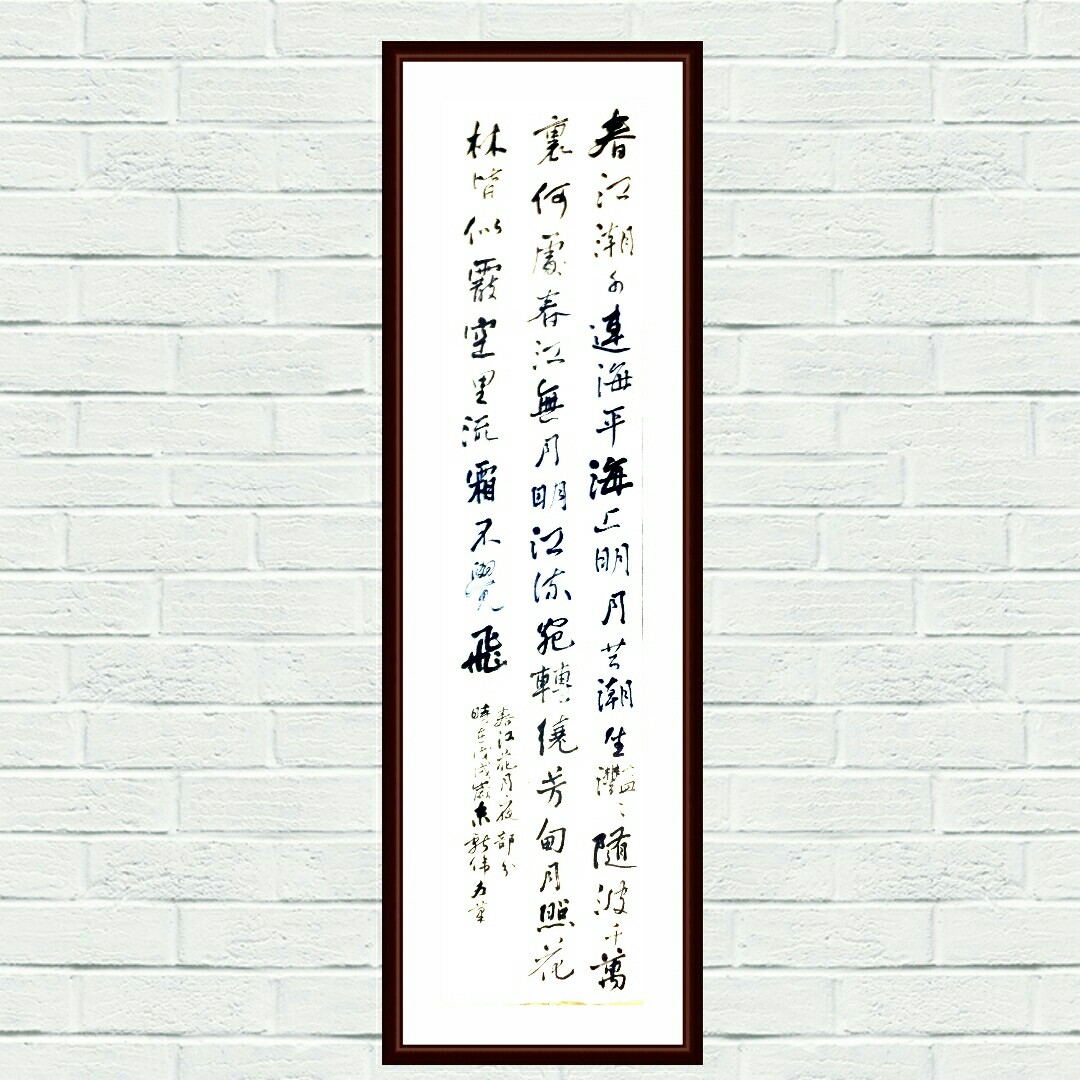 春江潮水連海平海上明月共潮生灩〻隨波千萬
裏何處春江無月明江流宛轉繞芳甸月照花
林皆似霰空里流霜不覺飛
春江花月夜部分
時在戊戌歲新伟